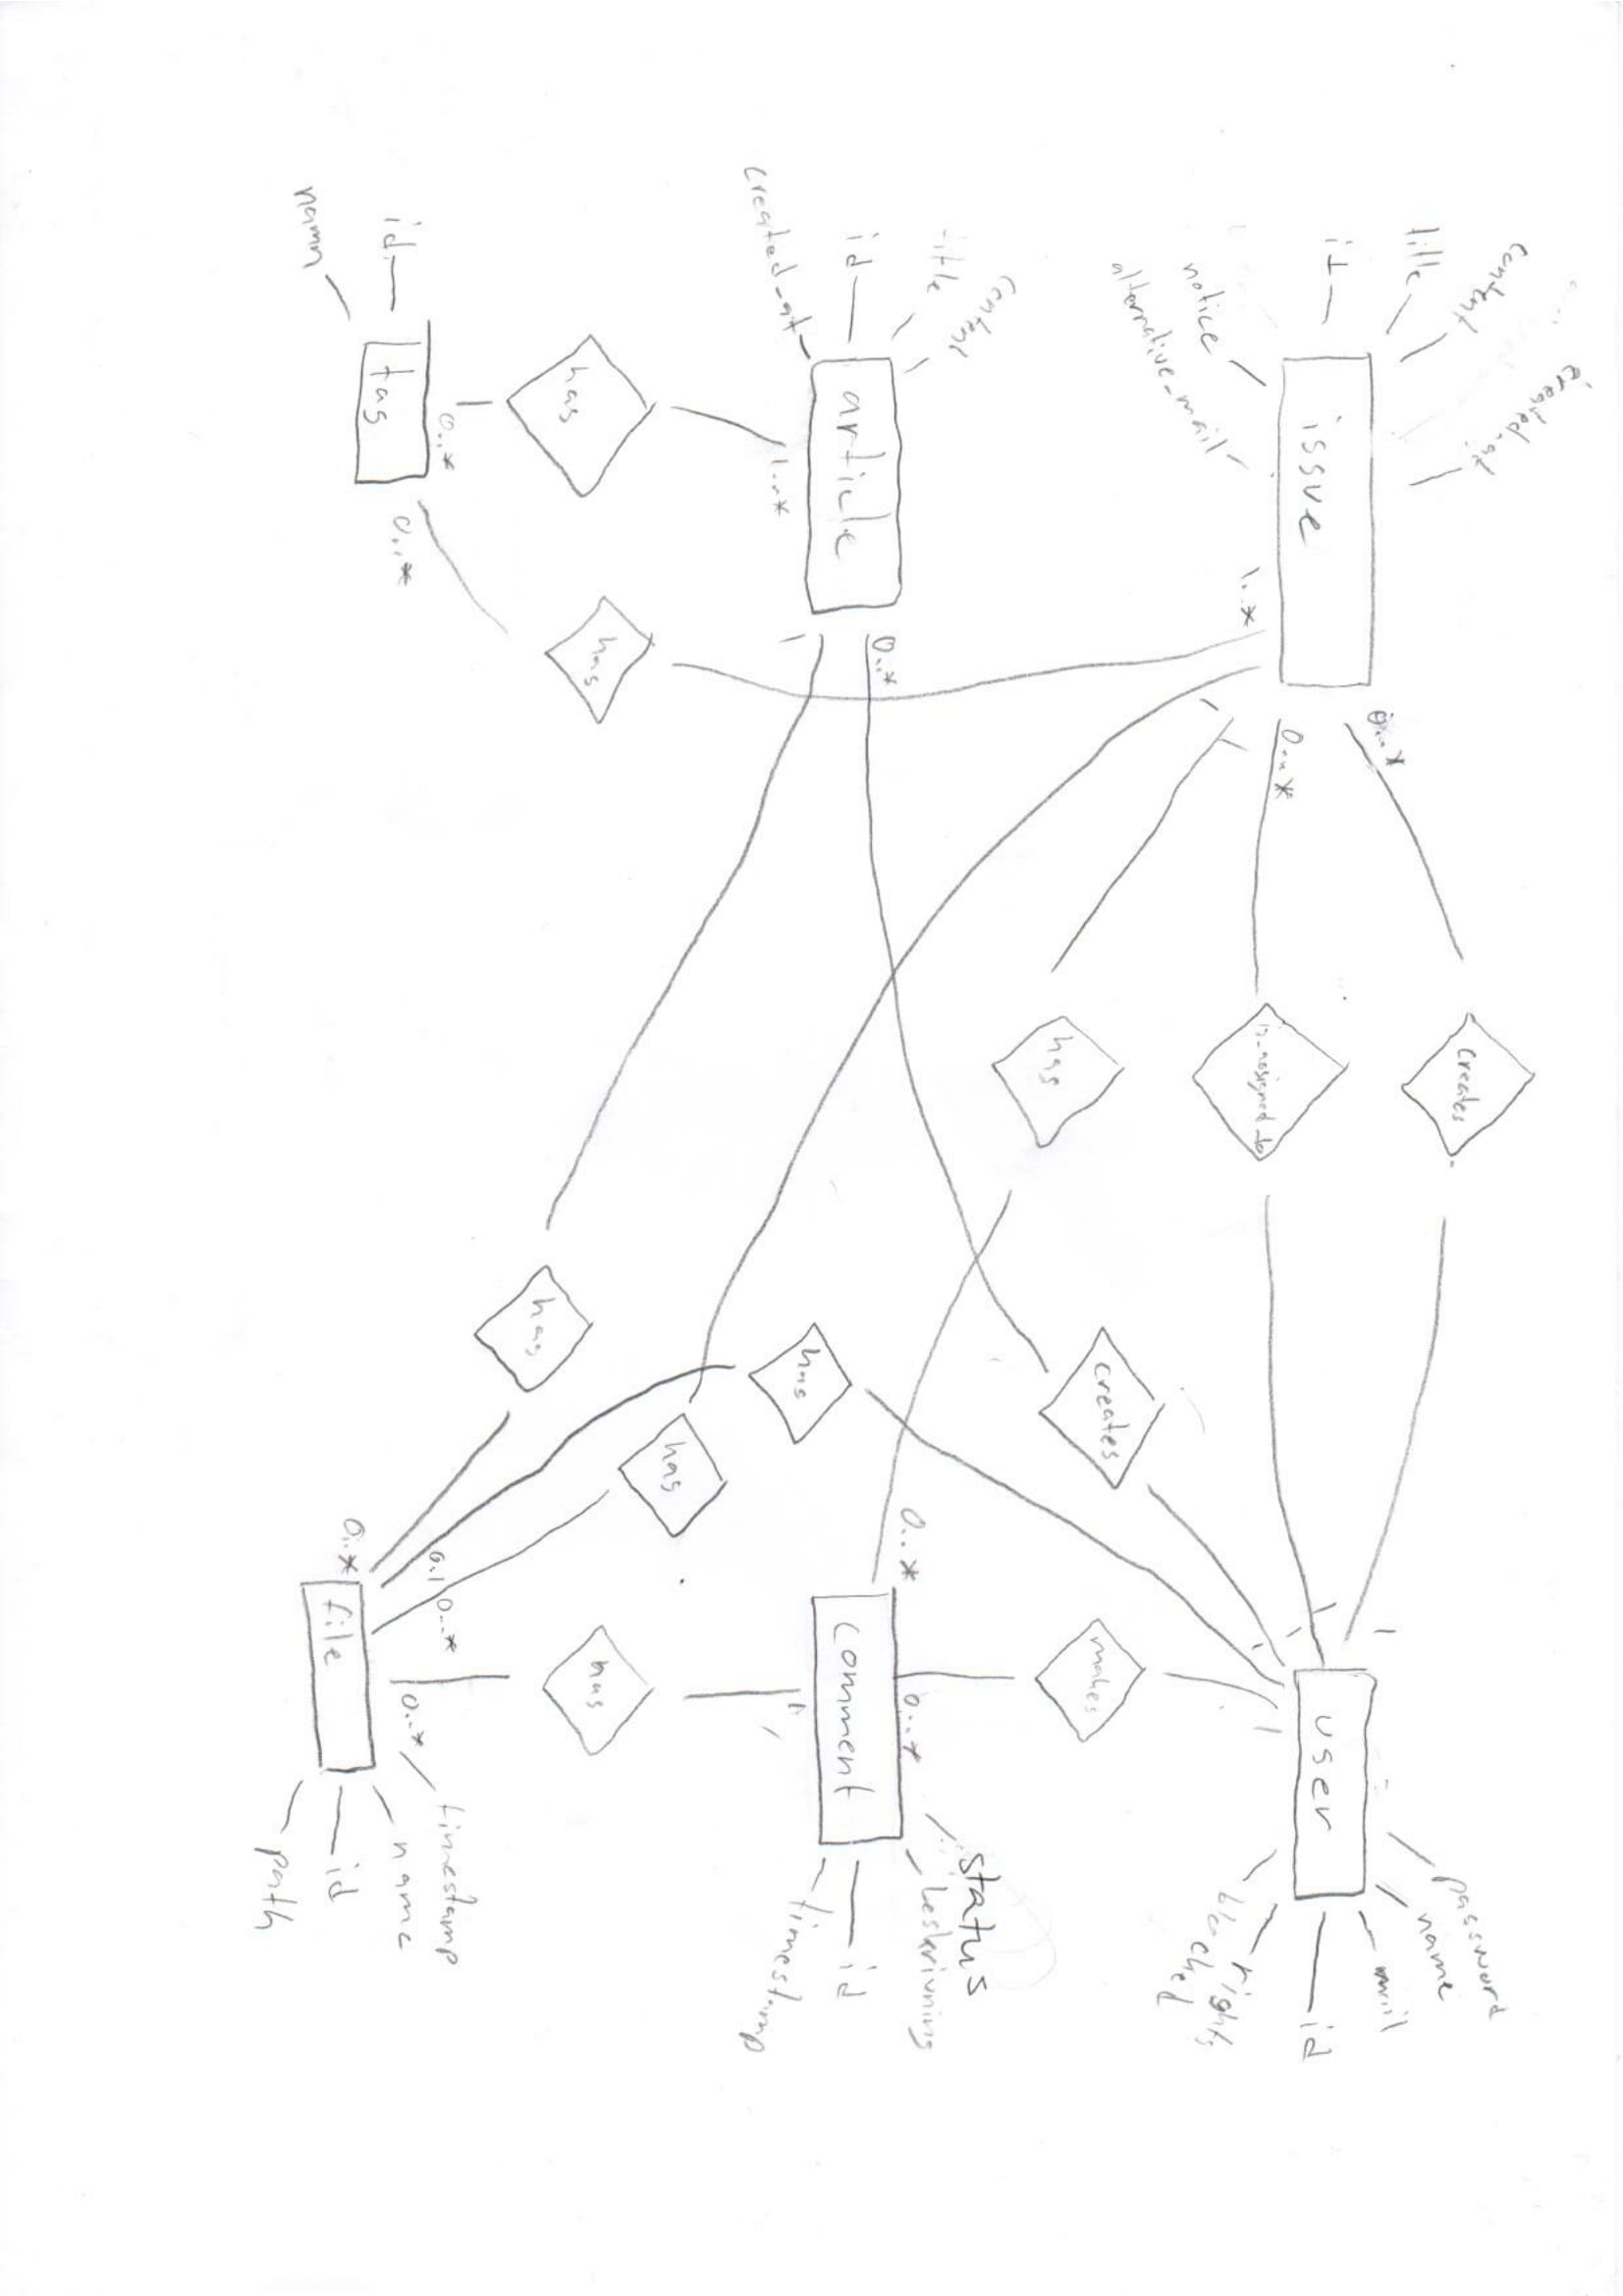 created_at
content
title
id
issue
notice
alternative_mail
0..*
creates
1
0..*
is_assigned_to
1
1..*
password
name
mail
user
id
rights
blocked
1
1
1
1
1
has
creates
makes
content
title
id
article
created_at
0..*
1..*
1
0..*
0..*
status
beskrivning
comment
id
timestamp
1
has
has
has
has
has
has
0..*
0..*
id
tag
namn
0..1
0..*
0..*
0..*
timestamp
name
file
id
path